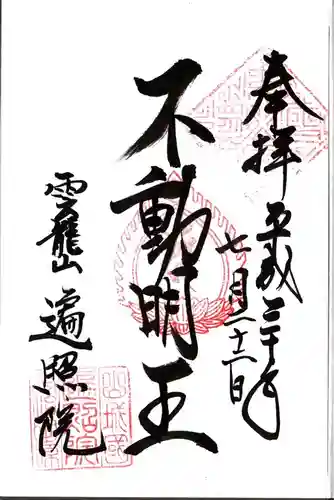 奉拝
平成三十年
七月二十二日
不動明王
雲龍山
遍照院